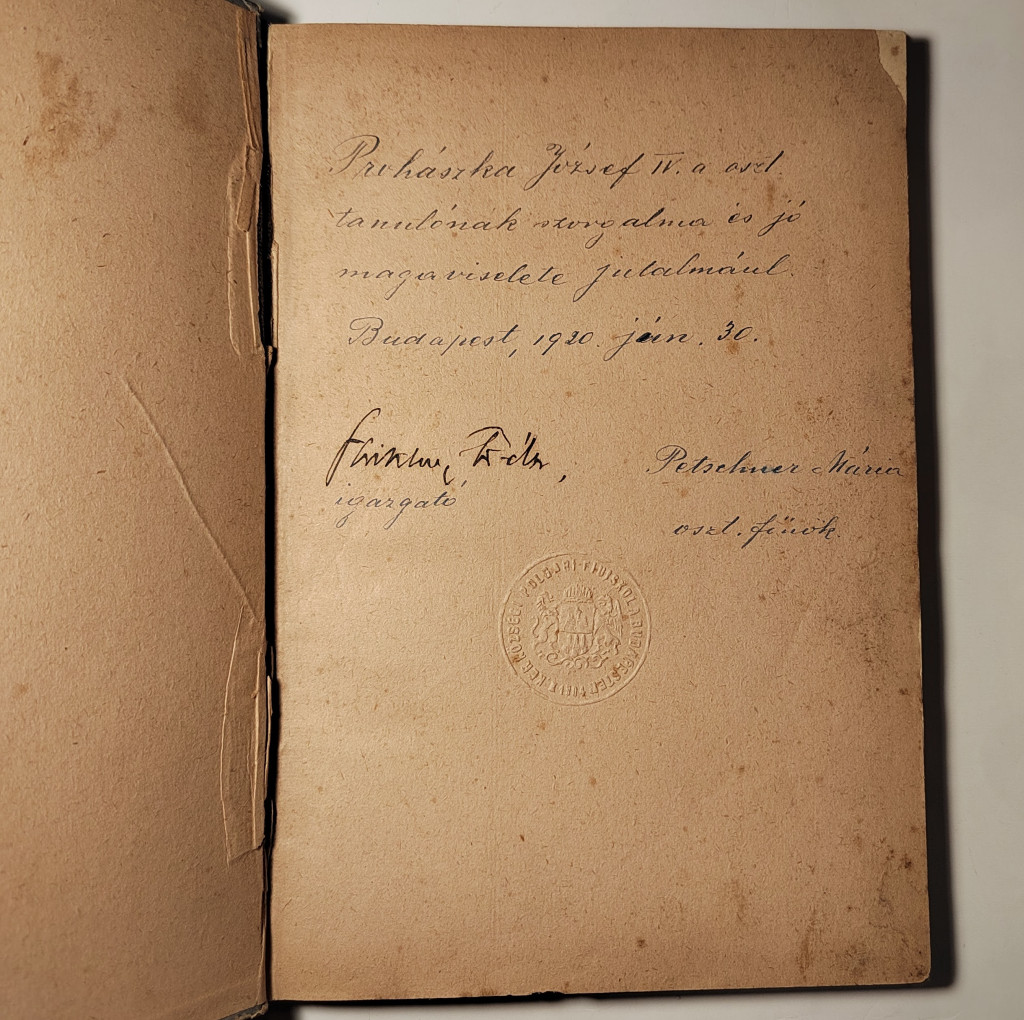 Prohászka József IV. a oszt.
tanulónak szorgalma és jó
magaviselete jutalmául.
Budapest, 1920. jún. 30.
igazgató
Petschner Mária
oszt. főnök.
POLGÁRI-FIUISKOLA BUDAPESTEN